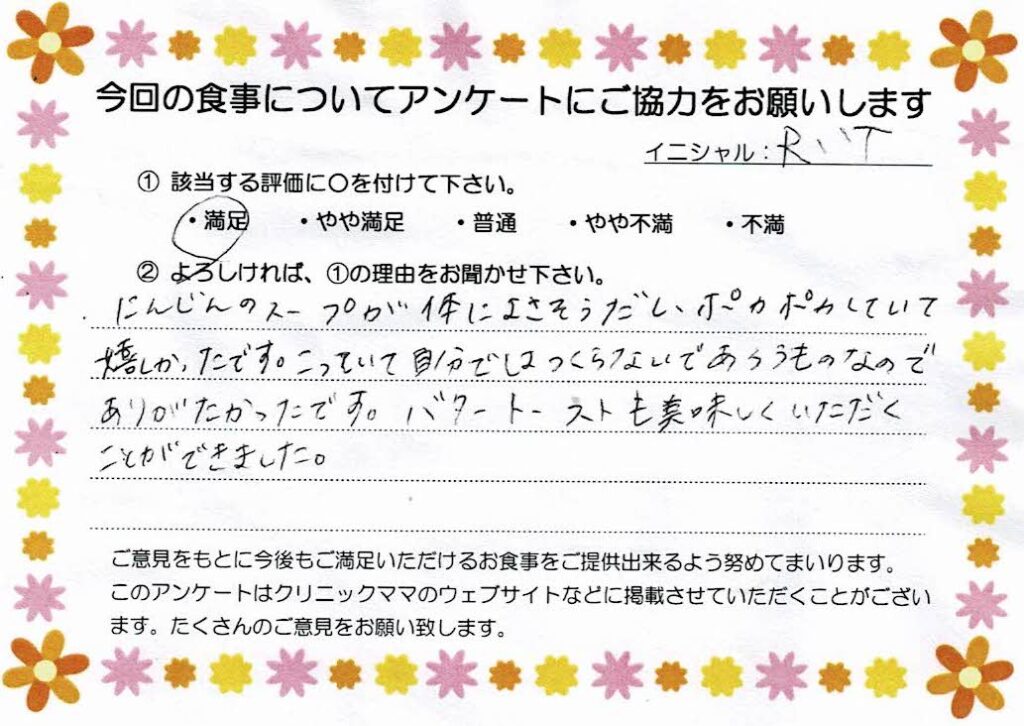 今回の食事についてアンケートにご協力をお願いします
イニシャル：R T
① 該当する評価に〇を付けて下さい。
・満足 ・やや満足 ・普通 ・やや不満 ・不満
② よろしければ、①の理由をお聞かせ下さい。
にんじんのスープが体によさそうだし、ポカポカしていて
嬉しかったです。こっていて自分ではつくらないであろうものなので
ありがたかったです。バタートーストも美味しくいただく
ことができました。
ご意見をもとに今後もご満足いただけるお食事をご提供出来るよう努めてまいります。
このアンケートはクリニックママのウェブサイトなどに掲載させていただくことがござい
ます。たくさんのご意見をお願い致します。